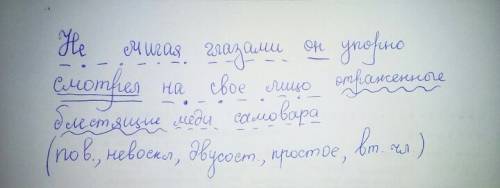 Не мигая глазами он упорно
смотрел на свое лицо отраженные
блестящие меди самовара
(пов., невоскл, двусост., простое, вт. чл)